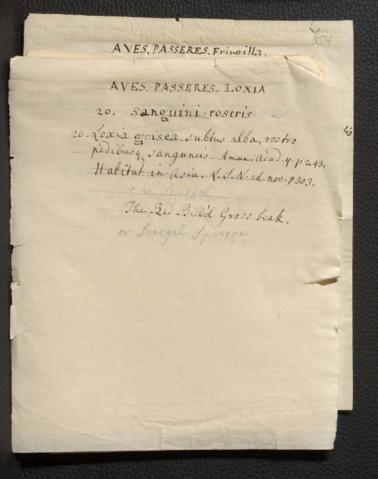 AVES. PASSERES. Fringilla.
AVES. PASSERES. LOXIA
20. sanguini-rostris
20. Loxia grisea, subtus alba, rostro
pedibusq, sanguineis. Amœn. Acad. 4. p 243.
Habitat in Asia. L.S.N. ed. nov. P 303.
& in Senegal
The Red Bill'd Gross beak.
or Senegal Sparrow